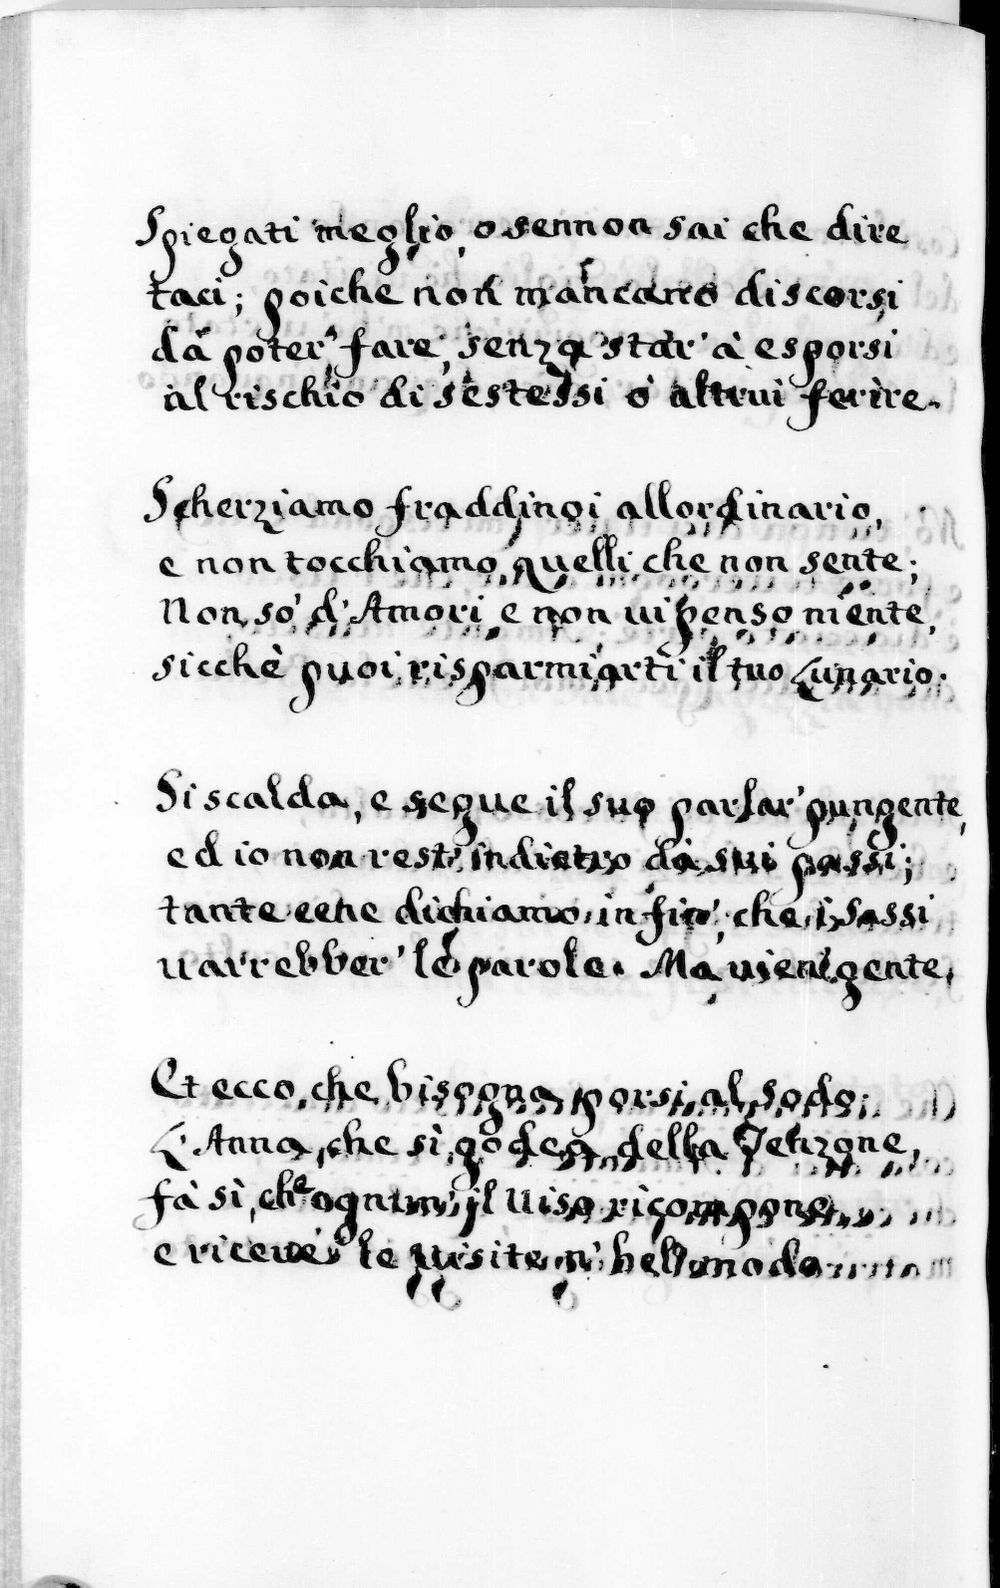 Spiegati meglio, o sennon sai che dire
taci; poiche non mancano discorsi
dà poter' fare, senza star' à esporsi
al rischio di sestessi ò altrui ferire.
Scherziamo fraddinoi allordinario,
e non tocchiamo quelli che non sente;
Non so' d'Amori, e non ui penso niente,
sicchè puoi risparmiarti il tuo Lunario.
Si scalda, e segue il suo parlar' pungente,
ed io non resto indietro dà sui passi;
tante cene dichiamo in fin', che i sassi
uarrebber' le parole. Ma uien gente,
Et ecco, che bisogna porsi al sodo;
L'Anna, che si godea della Tenzone,
fà sì, che ognun' il uiso ricompone,
e riceue le uisite in bel modo